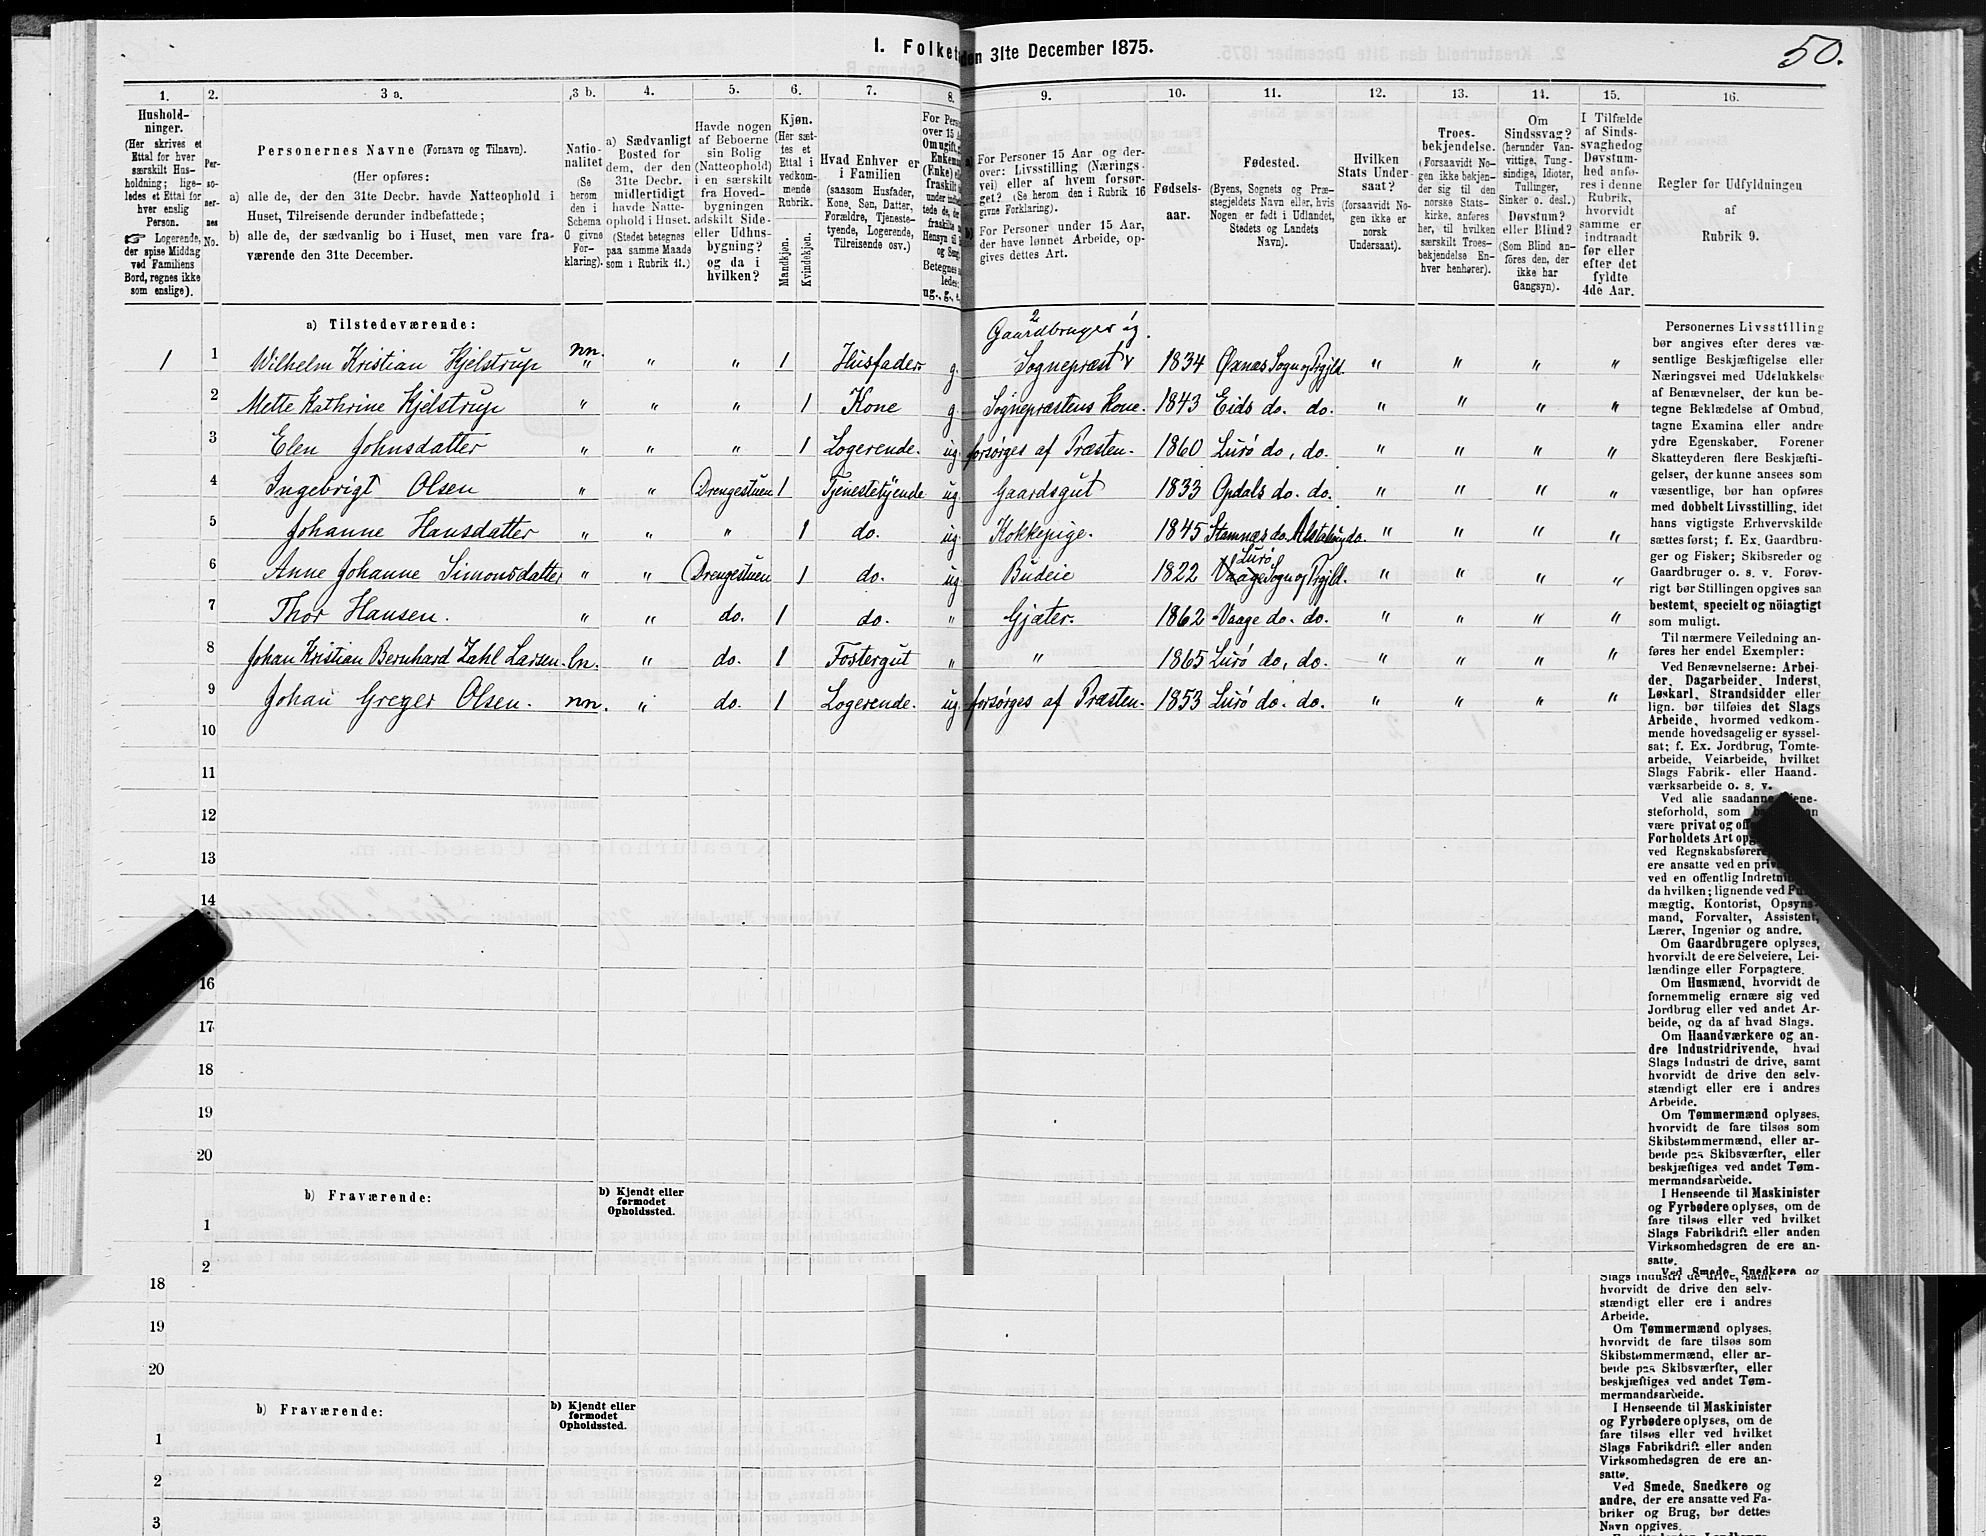 I. Folket den 31te December 1875.
50.
1. 2. 3 a. 3 b. 4. 5. 6. 7. 8. 9. 10. 11. 12. 13. 14. 15. 16.
Hushold-
ninger.
(Her skrives et
Ettal for hver
særskilt Hus-
holdning; lige-
ledes et Ettal for
hver enslig
Person.
☞ Logerende,
der spise Middag
ved Familiens
Bord, regnes ikke
som enslige).
Per-
so-
ner-
nes
No.
Personernes Navne (Fornavn og Tilnavn).
(Her opføres:
a) alle de, der den 31te Decbr. havde Natteophold i
Huset, Tilreisende derunder indbefattede;
b) alle de, der sædvanlig bo i Huset, men vare fra-
værende den 31te December.
Natio-
nalitet
(Se
herom
den i
Schema
O givne
For-
klaring).
a) Sædvanligt
Bosted for
dem, der den
31te Decbr.
midlertidigt
havde Natte-
ophold i Huset.
(Stedet betegnes
paa samme Maade
som i Rubrik 11.)
Havde nogen
af Beboerne
sin Bolig
(Natteophold)
i en særskilt
fra Hoved-
bygningen
adskilt Side-
eller Udhus-
bygning?
og da i
hvilken?
Kjøn.
(Her sæt-
tes et
Ettal i
vedkom-
mende
Rubrik.
Mandkjøn.
Kvindekjøn.
Hvad Enhver er
i Familien
(saasom Husfader,
Kone, Søn, Datter,
Forældre, Tjeneste-
tyende, Logerende,
Tilreisende osv.)
For Pers
over 15 A
Om ugift,
Enkem
(Enke) el
fraskilt
under
tede de,
fraskilte
Hensyn til
og Seng
Betegnes
ledes:
ug., g., e.
a) For Personer 15 Aar og der-
over: Livsstilling (Nærings-
vei) eller af hvem forsør-
get? (Se herom den i Rubrik 16
givne Forklaring).
b) For Personer under 15 Aar,
der have lønnet Arbeide, op-
gives dettes Art.
Fødsels-
aar.
Fødested.
(Byens, Sognets og Præ-
stegjeldets Navn eller, hvis
Nogen er født i Udlandet,
Stedets og Landets
Navn).
Hvilken
Stats Under-
saat?
(forsaavidt No-
gen ikke er
norsk
Undersaat).
Troes-
bekjendelse.
(Forsaavidt No-
gen ikke bekjen-
der sig til den
norske Stats-
kirke, anføres
her, til hvilken
særskilt Troes-
bekjendelse En-
hver henhører).
Om
Sindssvag?
(herunder Van-
vittige, Tung-
sindige, Idioter,
Tullinger,
Sinker o. desl.)
Døvstum?
eller Blind?
(Som Blind an-
føres den, der
ikke har
Gangsyn).
I Tilfælde
af Sinds-
svaghedog
Døvstum-
hed anfø-
res i denne
Rubrik,
hvorvidt
samme er
indtraadt
før eller
efter det
fyldte
4de Aar.
Regler for Udfyldningen
af
Rubrik 9.
a) Tilstedeværende:
2
Gaardbruger og
1 1 Wilhelm Kristian Hjelstrup nn. " " " 1 Husfader g. Sogneprest 1834 Øxnæs Sogn og Prgjld. " " " "
2 Mette Kathrine Hjelstrup " " " 1 Kone g. Sognepræstens Kone. 1843 Eids do. do. " " " "
3 Elen Johnsdatter " " " 1 Logerende. ug. forsørges af Præsten. 1860 Lurø do, do. " " " "
4 Ingebrigt Olsen " " Drengestuen 1 Tjenestetyende ug Gaardsgut 1833 Opdals do. do. " " " "
5 Johanne Hansdatter " " " 1 do. ug. Kokkepige. 1845 Stamnæs do. Alstahoug do. " " " "
Lurø
6 Anne Johanne Simonsdatter " " Drengestuen 1 do. ug Budeie 1822 Vaage Sogn og Prgjld. " " " "
7 Thor Hansen. " " do. 1 do. " Gjæter. 1862 Vaage do. do. " " " "
8 Johan Kristian Bernhard Zahl Larsen. ln. " do. 1 Fostergut " " 1865 Lurø do, do. " " " "
9 Johan Greger Olsen. nn. " do. 1 Logerende. ug. forsørges af Præsten. 1853 Lurø do. do. " " " "
10
11
12
13
14
16
17
18
19
20
b) Fraværende:
b) Kjendt eller
formodet
Opholdssted.
1
2
Personernes Livsstilling
bør angives efter deres væ-
sentlige Beskjæftigelse eller
Næringsvei med Udelukkelse
af Benævnelser, der kun be-
tegne Beklædelse af Ombud,
tagne Examina eller andre
ydre Egenskaber. Forener
Skatteyderen flere Beskjæfti-
gelser, der kunne ansees som
væsentlige, bør han opføres
med dobbelt Livsstilling, idet
hans vigtigste Erhvervskilde
sættes først; f. Ex. Gaardbru-
ger og Fisker; Skibsreder og
Gaardbruger o. s. v. Forøv-
rigt bør Stillingen opgives saa
bestemt, specielt og nöiagtigt
som muligt.
Til nærmere Veiledning an-
føres her endel Exempler:
Ved Benævnelserne: Arbei-
der, Dagarbeider, Inderst,
Løskarl, Strandsidder eller
lign. bør tilføies det Slags
Arbeide, hvormed vedkom-
mende hovedsagelig er syssel-
sat; f. Ex. Jordbrug, Tomte-
arbeide, Veiarbeide, hvilket
Slags Fabrik- eller Haand-
værksarbeide o. s. v.
Ved alle saadanne
steforhold, som
være privat og
Forholdets Art
ved Regnskabsfører
ere ansatte ved en
ved en offentlig Indretn
da hvilken; lignende ved
mægtig, Kontorist, Opsyns-
mand, Forvalter, Assistent,
Lærer, Ingeniør og andre.
Om Gaardbrugere oplyses,
hvorvidt de ere Selveiere, Lei-
lændinge eller Forpagtere.
Om Husmænd, hvorvidt de
fornemmelig ernære sig ved
Jordbrug eller ved andet Ar-
beide, og da af hvad Slags.
Om Haandværkere og an-
dre Industridrivende, hvad
Slags Industri de drive, samt
hvorvidt de drive den selv-
stændigt eller ere i andres
Arbeide.
Om Tømmermænd oplyses,
hvorvidt de fare tilsøs som
Skibstømmermænd, eller ar-
beide paa Skibsværfter, eller
beskjæftiges ved andet Tøm-
mermandsarbeide.
I Henseende til Maskinister
og Fyrbødere oplyses, om de
fare tilsøs eller ved hvilket
Slags Fabrikdrift eller anden
Virksomhedsgren de ere an-
satte.
Ved Smede, Snedkere og
18
19
20
b) Fraværende:
b) Kjendt eller
formodet
Opholdssted.
1
2
3
Slags Industri de drive, samt
hvorvidt de drive den selv-
stændigt eller ere i andres
Arbeide.
Om Tømmermænd oplyses,
hvorvidt de fare tilsøs som
Skibstømmermænd, eller ar-
beide paa Skibsværfter, eller
beskjæftiges ved andet Tøm-
mermandsarbeide.
I Henseende til Maskinister
og Fyrbødere oplyses, om de
fare tilsøs eller ved hvilket
Slags Fabrikdrift eller anden
Virksomhedsgren de ere an-
satte.
Ved Smede, Snedkere og
andre, der ere ansatte ved Fa-
briker og Brug, bør dettes
Navn opgives.